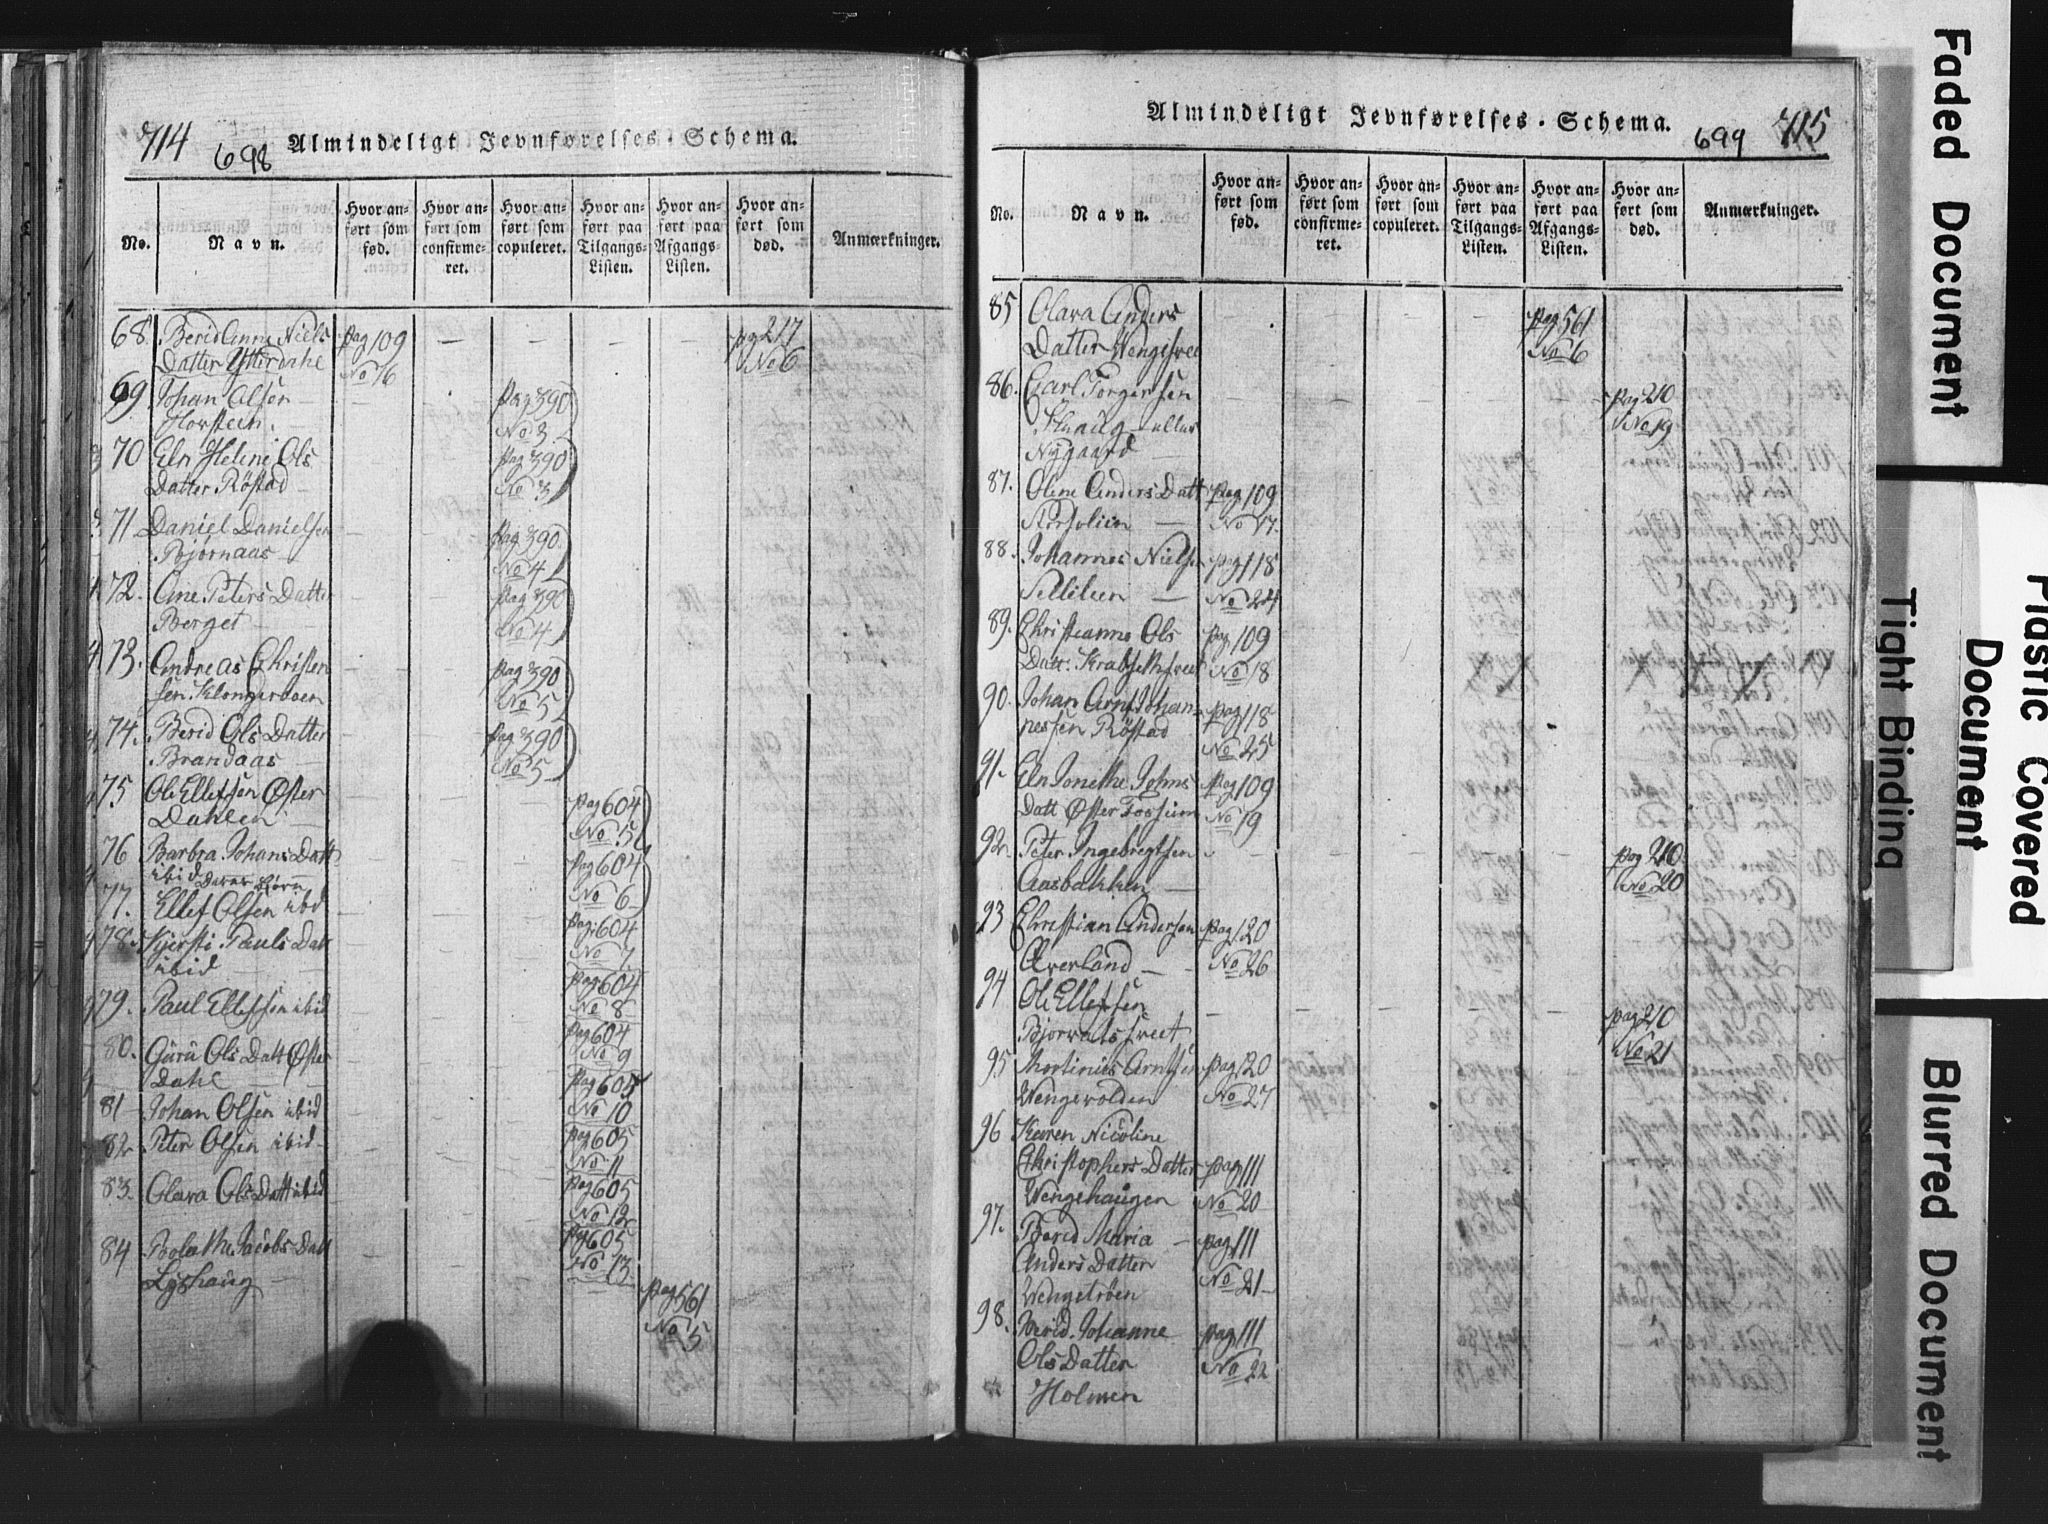 714
698
Almindeligt Jevnførelses-Schema.
No.
Navn.
Hvor anført som fød.
Hvor anført som confirmeret.
Hvor anført som copuleret.
Hvor anført paa Tilgangs-Listen.
Hvor anført paa Afgangs-Listen.
Hvor anført som død.
Anmærkninger.
68. Berid Anne Niels pag 109 pag 217
Datter Ytterdahl No 16 No 6
69 Johan Olsen pag 390
Horstein. No 3
70 Eln Helene Ols pag 390
Datter Röstad No 3
71 Daniel Danielsen pag 390
Bjornaas No 4
72. Ane Peters Datter pag 390
Berget No 4
73. Andreas Christen pag 390
sen Klongerboen No 5
74. Berid Ols Datter pag 390
Brandaas No 5
75 Ole Ellefsen Øster pag 604
Dahlen No 5
76 Barbra Johans Datt pag 604
ibid Deres Børn No 6
77. Ellef Olsen ibd pag 604
No 7
78. Kjersti Pauls Datt pag 604
ibid No 8
79. Paul Ellefsen ibid pag 604
No 9
80. Guru Ols Datt Øster pag 605
Dahl No 10
81 Johan Olsen ibid pag 605
No 11
82 Peter Olsen ibid pag 605
No 12
83. Olava Ols Datt ibid pag 605
No 13
84 Jacobs Datt pag 561
Lyshaug No 5
Almindeligt Jevnførelses-Schema.
699
715
No.
Navn.
Hvor anført som fød.
Hvor anført som confirmeret.
Hvor anført som copuleret.
Hvor anført paa Tilgangs-Listen.
Hvor anført paa Afgangs-Listen.
Hvor anført som død.
Anmærkninger.
85 Olava Anders pag 561
Datter No 6
86. Carl Torgersen pag 210
eller No 19
Nygaard
87. Oline Anders Datt pag 109
No 17.
88. Johannes Niels pag 118
No 24
89. Christianna Ols pag 109
Datt. No 18
90. Johan Arnt Johan- pag 118
nessen Röstad No 25
91. Eln Jonethe Johns pag 109
Datt Øster Fossum No 19
92. Peter Ingebregtsen pag 210
Aasbakken No 20
93 Christian Andersen pag 120
Overland No 26
94 Ole Ellefsen pag 210
No 21
95. Mortinus Arntsen pag 120
Wengsvolden No 27
96 Karen Nicoline
Christophers Datter pag 111
Wengshaugen No 20
97. Berid Maria pag 111
Anders Datter No 21
Wengströen
98. Berid Johanne pag 111
Ols Datter No 22
Holmen
Faded Document
Tight Binding
Plastic Covered Document
Blurred Document